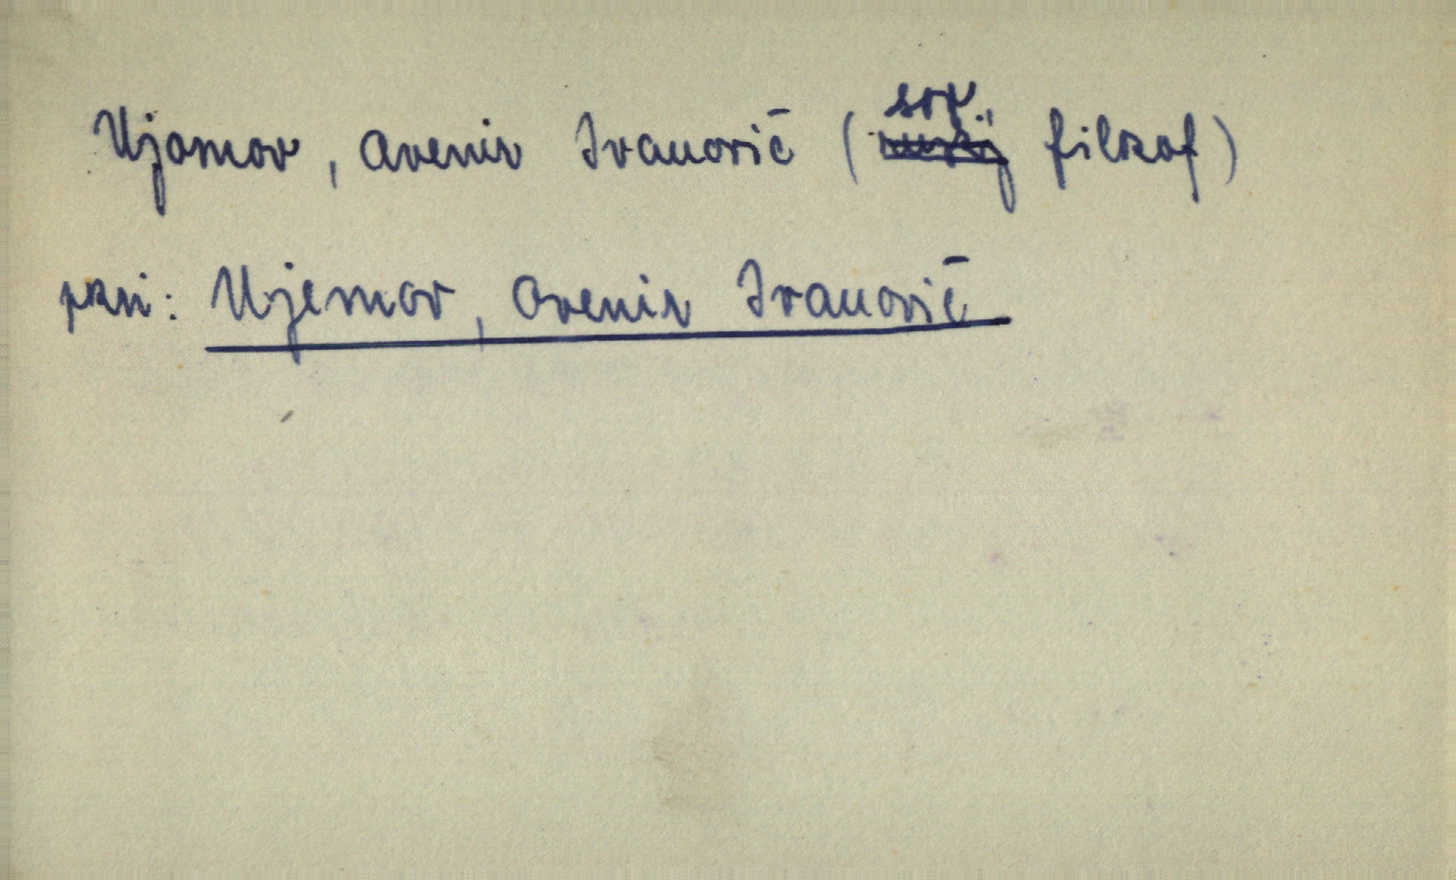 Ujomov, Avenir Ivanovič (sov. filozof)
pri: Ujemov, Avenir Ivanovič